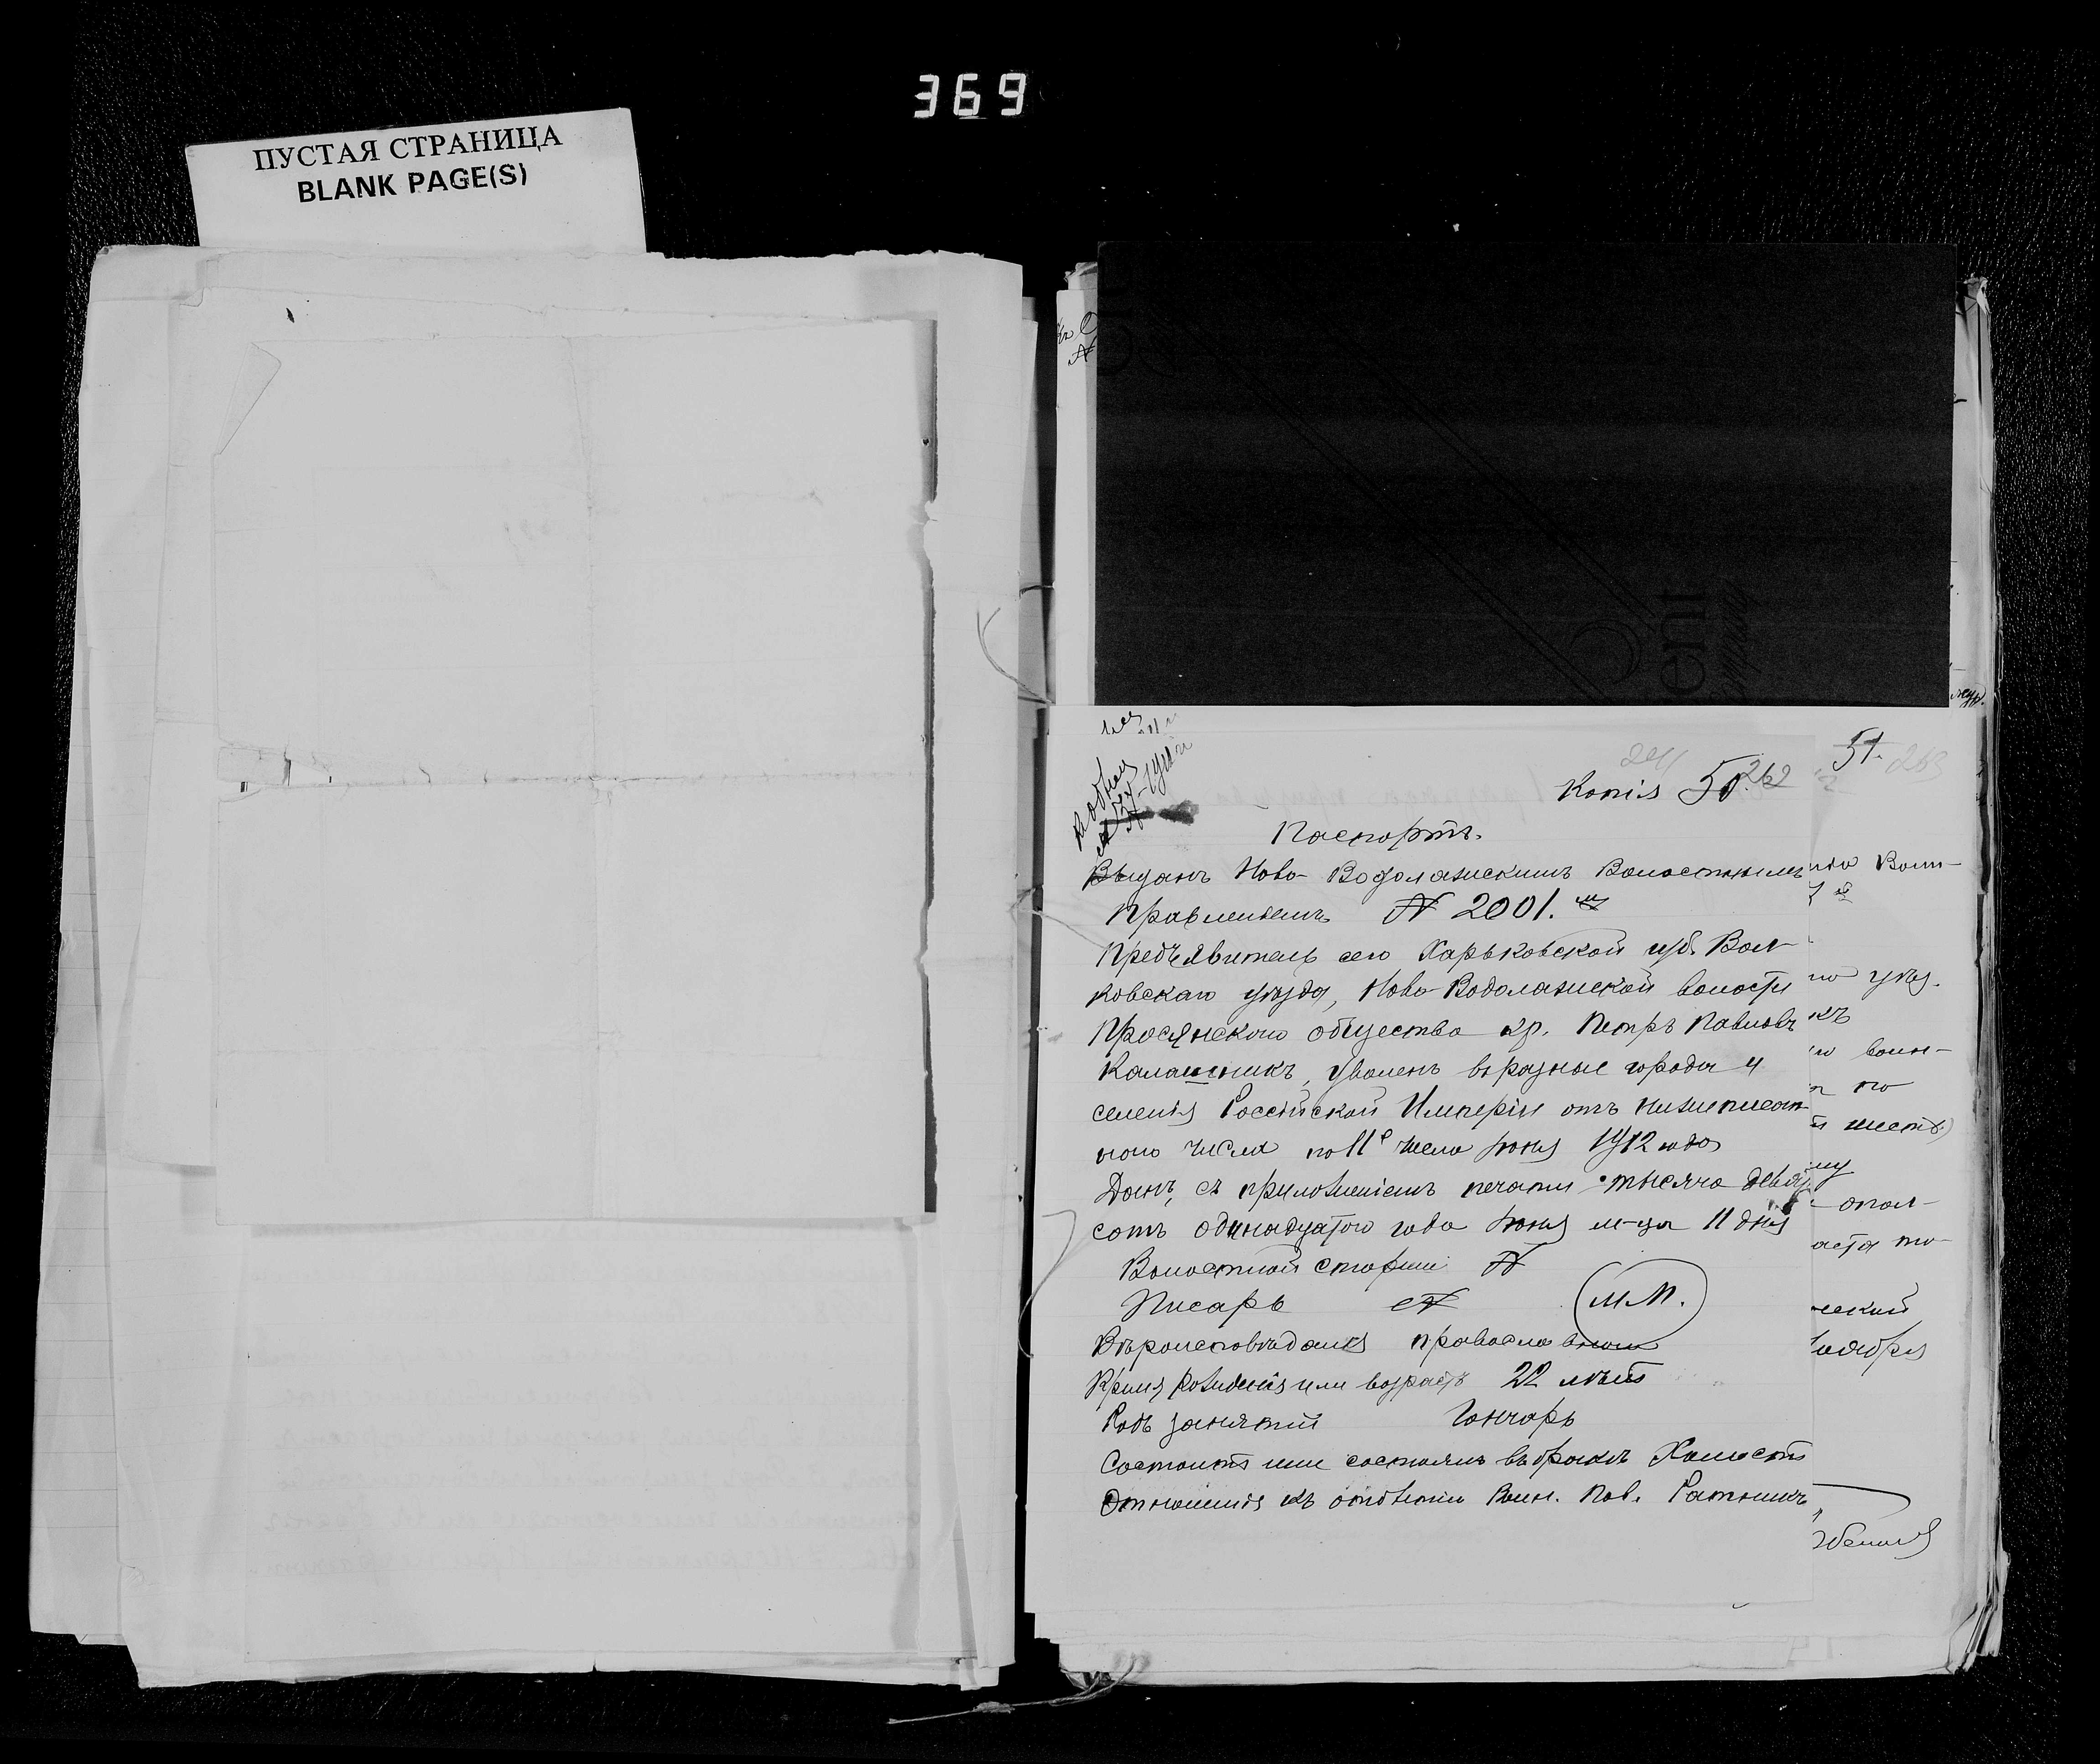 369
ПУСТАЯ СТРАНИЦА
BLANK PAGE(S)
51.
263
Копія 50. 262
Паспортъ.
Выданъ Ново-Водолажскимъ Волостнымъ
Правленіемъ № 2001.
Предъявитель сего Харьковской губ. Вал-
ковскаго уѣзда, Ново-Водолажской волости
Просянского общества кр. Петръ Павловъ
Калашникъ, уволенъ въ разные города и
селенія Россійской Имперіи отъ нижеписан-
ного числа по 11е число Іюня 1912 года
Данъ, съ приложеніемъ печати тысяча девять
сотъ одинадцатого года Іюня м-ца 11 дня
Волостной старши
Писарь
М.П.
Вѣроисповѣданія православнаго
Время рожденія или возрастъ 22 лѣтъ
Родъ занятій Гончарь
Состоитъ или состоялъ въ бракѣ Холостъ
Отношенія къ отбытію воин. пов. Ратникъ